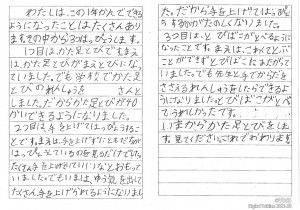 わたしは、この1年かんでできる
ようになったことはたくさんあり
ますその中から3つはっぴょうします。
1つ目はかた足とびですまえ
は、かた足とびがまえとびにな
っていました。でも学校でかた足
とびのれんしゅうをさん
しました。だからかた足とびが
かいできるようになりました。
2つ目は、手を上げてはっぴょうするこ
とです。まえは、手を上げずにともだちが
はっぴょうしているのを見るだけでした
手を上げせていいなとおもって
いました。でもいまは、ゆう気を出して
たくさん手を上げられるようになりまし
た。だから手を上げてはっぴょ
うするのがたのしくなりました。
3つ目は、とびばこがとべるように
なったことです。まえは、こわくてとぶ
ことができずとびばこにまたがって
いました。でも先生と手でからだを
ささえるれんしゅうをしたらできるよ
うになりましたとびばこがとべ
てうれしかったです。
いまからかた足とびをは
見てくださいこれでおわります